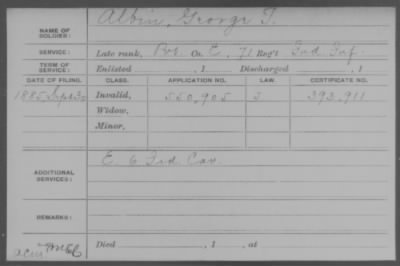 NAME OF SOLDIER: Albin, George T.
SERVICE: Late rank, Pvt Co. E, 71 Reg't Ind Inf.
TERM OF SERVICE: Enlisted , 1 Discharged , 1
DATE OF FILING. CLASS. APPLICATION NO. LAW. CERTIFICATE NO.
1885 Sept 30 Invalid, 550,905 393,911
Widow,
Minor,
ADDITIONAL SERVICES: E 6 Ind Cav
REMARKS:
Died , 1 , at